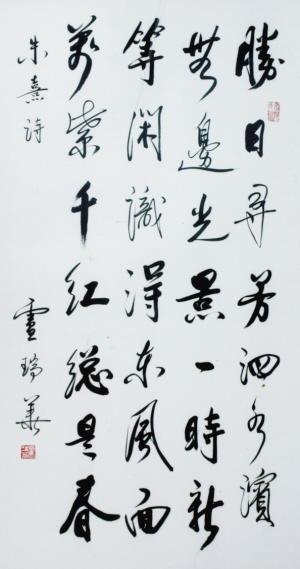 勝日尋芳泗水濱
無邊光景一時新
等閑識得東風面
萬紫千紅總是春
朱熹詩
盧瑞華